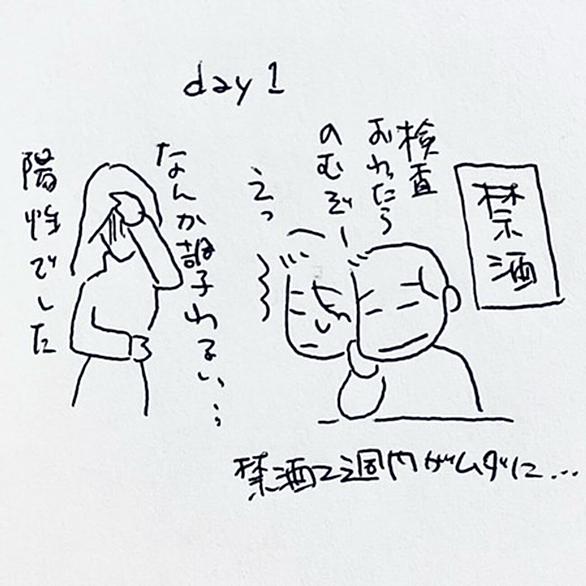 day 1
禁酒
検査
おわったら
のむぞー
えっ
なんか調子わるい…
陽性でした
禁酒2週間がムダに…